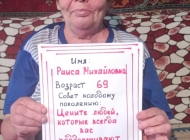 Имя:
Раиса Михайловна
Возраст 69
Совет молодому
поколению:
Цените людей,
которые всегда
вас
поддерживают